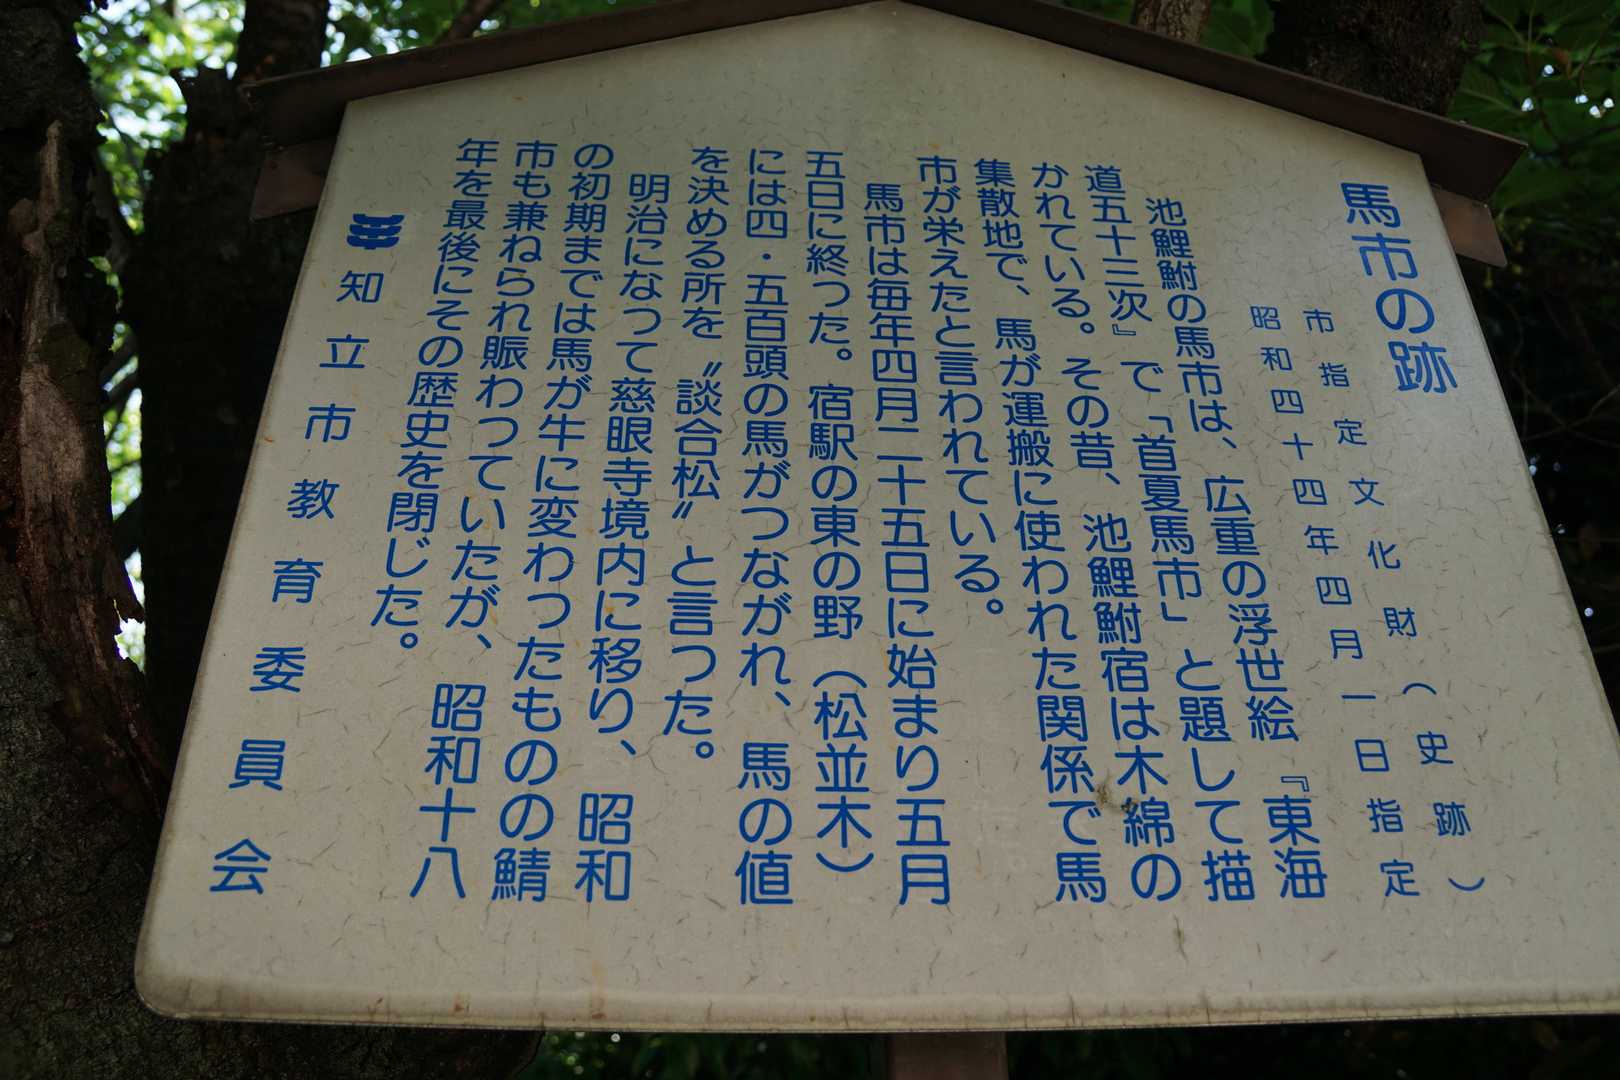 馬市の跡
市指定文化財（史跡）
昭和四十四年四月一日指定
池鯉鮒の馬市は、広重の浮世絵『東海
道五十三次』で「首夏馬市」と題して描
かれている。その昔、池鯉鮒宿は木綿の
集散地で、馬が運搬に使われた関係で馬
市が栄えたと言われている。
馬市は毎年四月二十五日に始まり五月
五日に終った。宿駅の東の野（松並木）
には四・五百頭の馬がつながれ、馬の値
を決める所を〝談合松〟と言つた。
明治になつて慈眼寺境内に移り、昭和
の初期までは馬が牛に変わつたものの鯖
市も兼ねられ賑わつていたが、昭和十八
年を最後にその歴史を閉じた。
知立市教育委員会